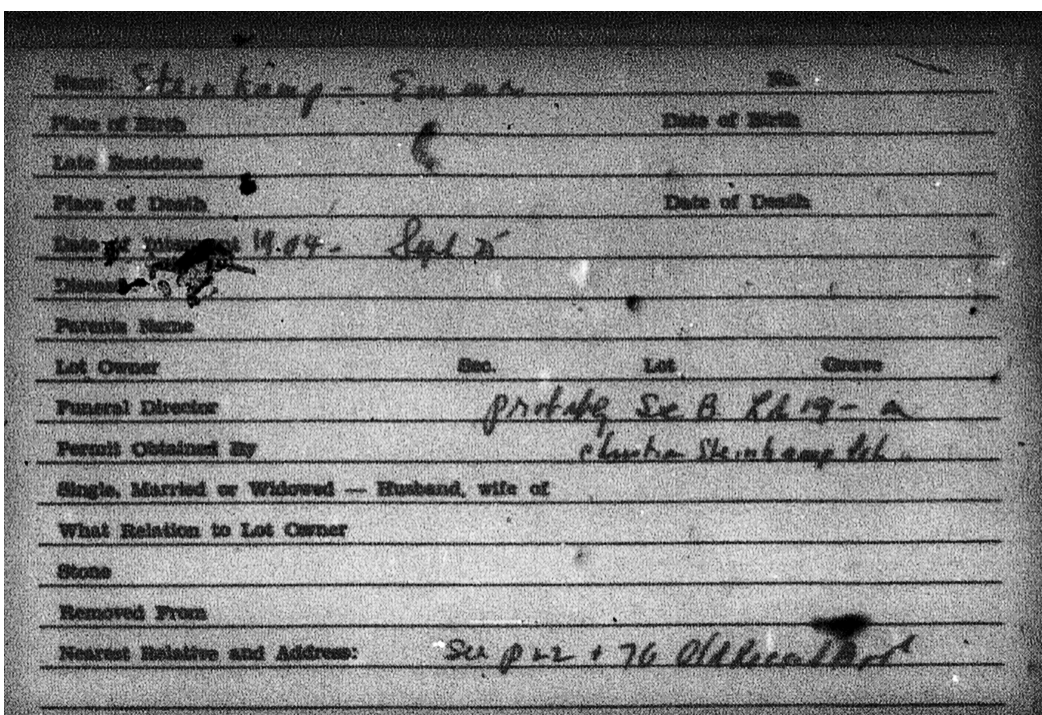 Name: Steinkamp - Emma No.
Place of Birth Date of Birth
Late Residence
Place of Death Date of Death
Date of Interment 1904 - Sept 5
Disease
Parents Name
Lot Owner Sec. Lot Grave
Funeral Director probably Sec B Lot 19 - on
Permit Obtained By Christian Steinkamp lot.
Single, Married or Widowed — Husband, wife of
What Relation to Lot Owner
Stone
Removed From
Nearest Relative and Address: See p 22 + 76 Old Record Book